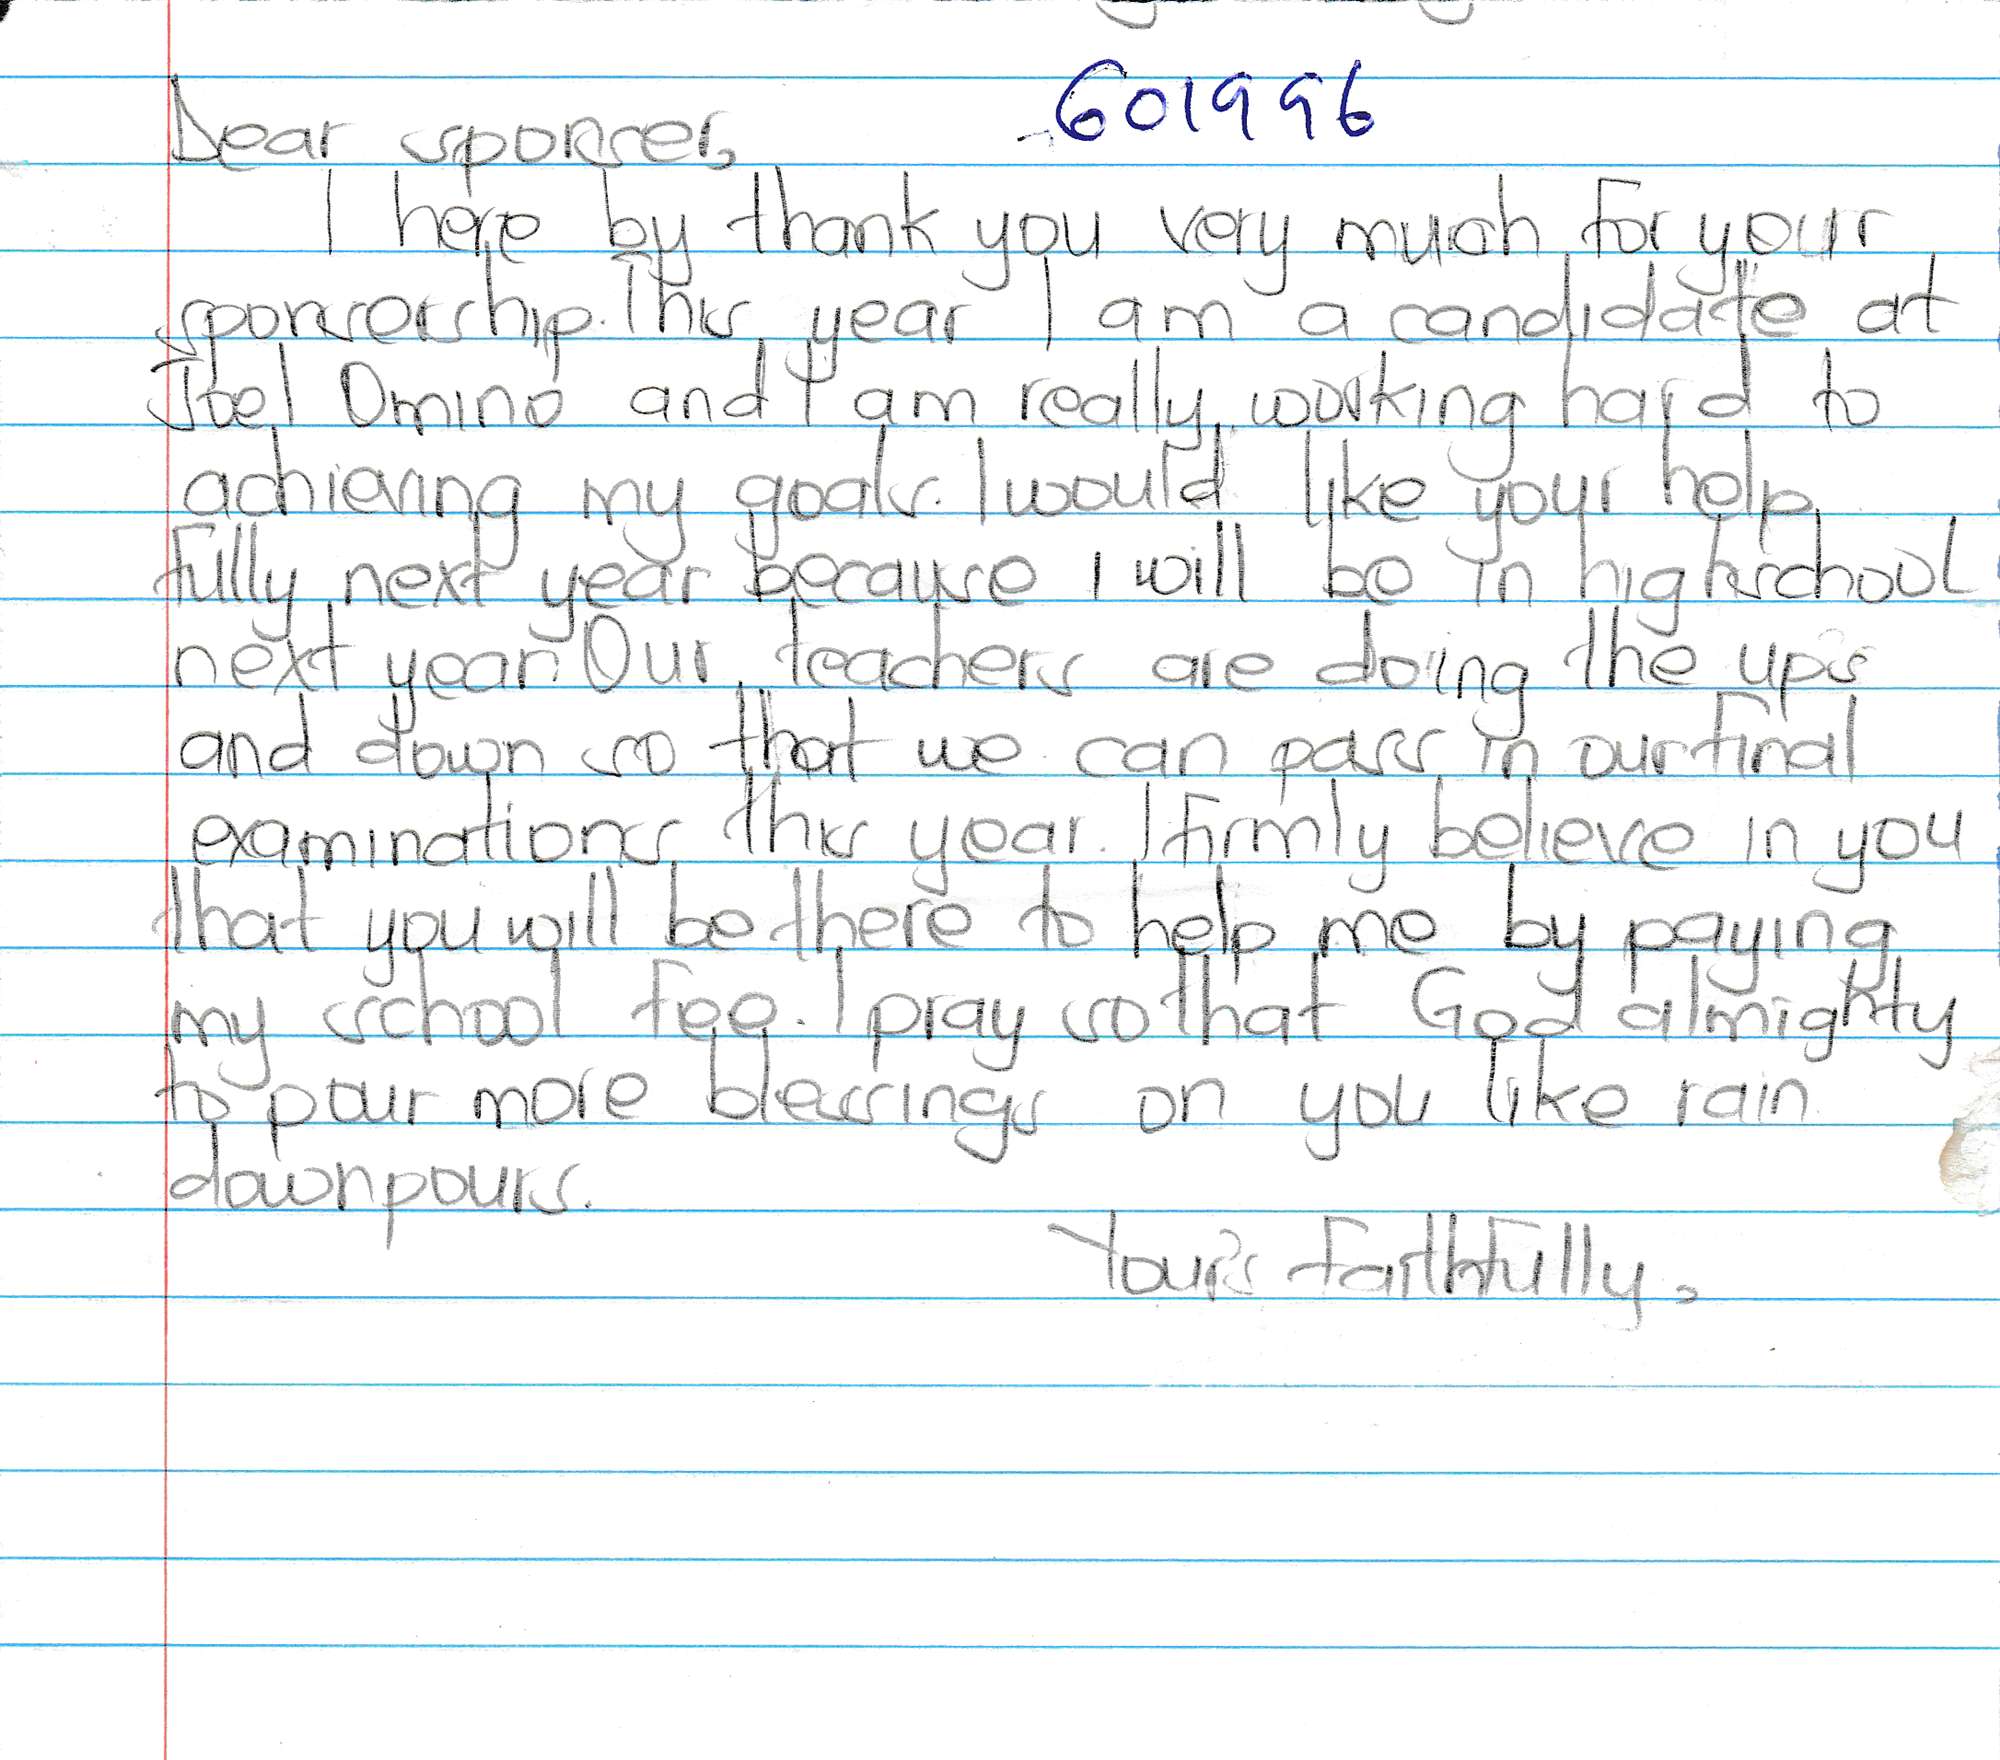 601996
Dear sponser,
I here by thank you very much for your
sponsorship. This year I am a candidate at
Joel Omino and I am really working hard to
achieving my goals. I would like your help
fully next year because I will be in highschool
next year. Our teachers are doing the up's
and down so that we can pass in our final
examinations this year. I firmly believe in you
that you will be there to help me by paying
my school fee. I pray so that God almighty
to pour more blessings on you like rain
downpours.
Your's faithfully,